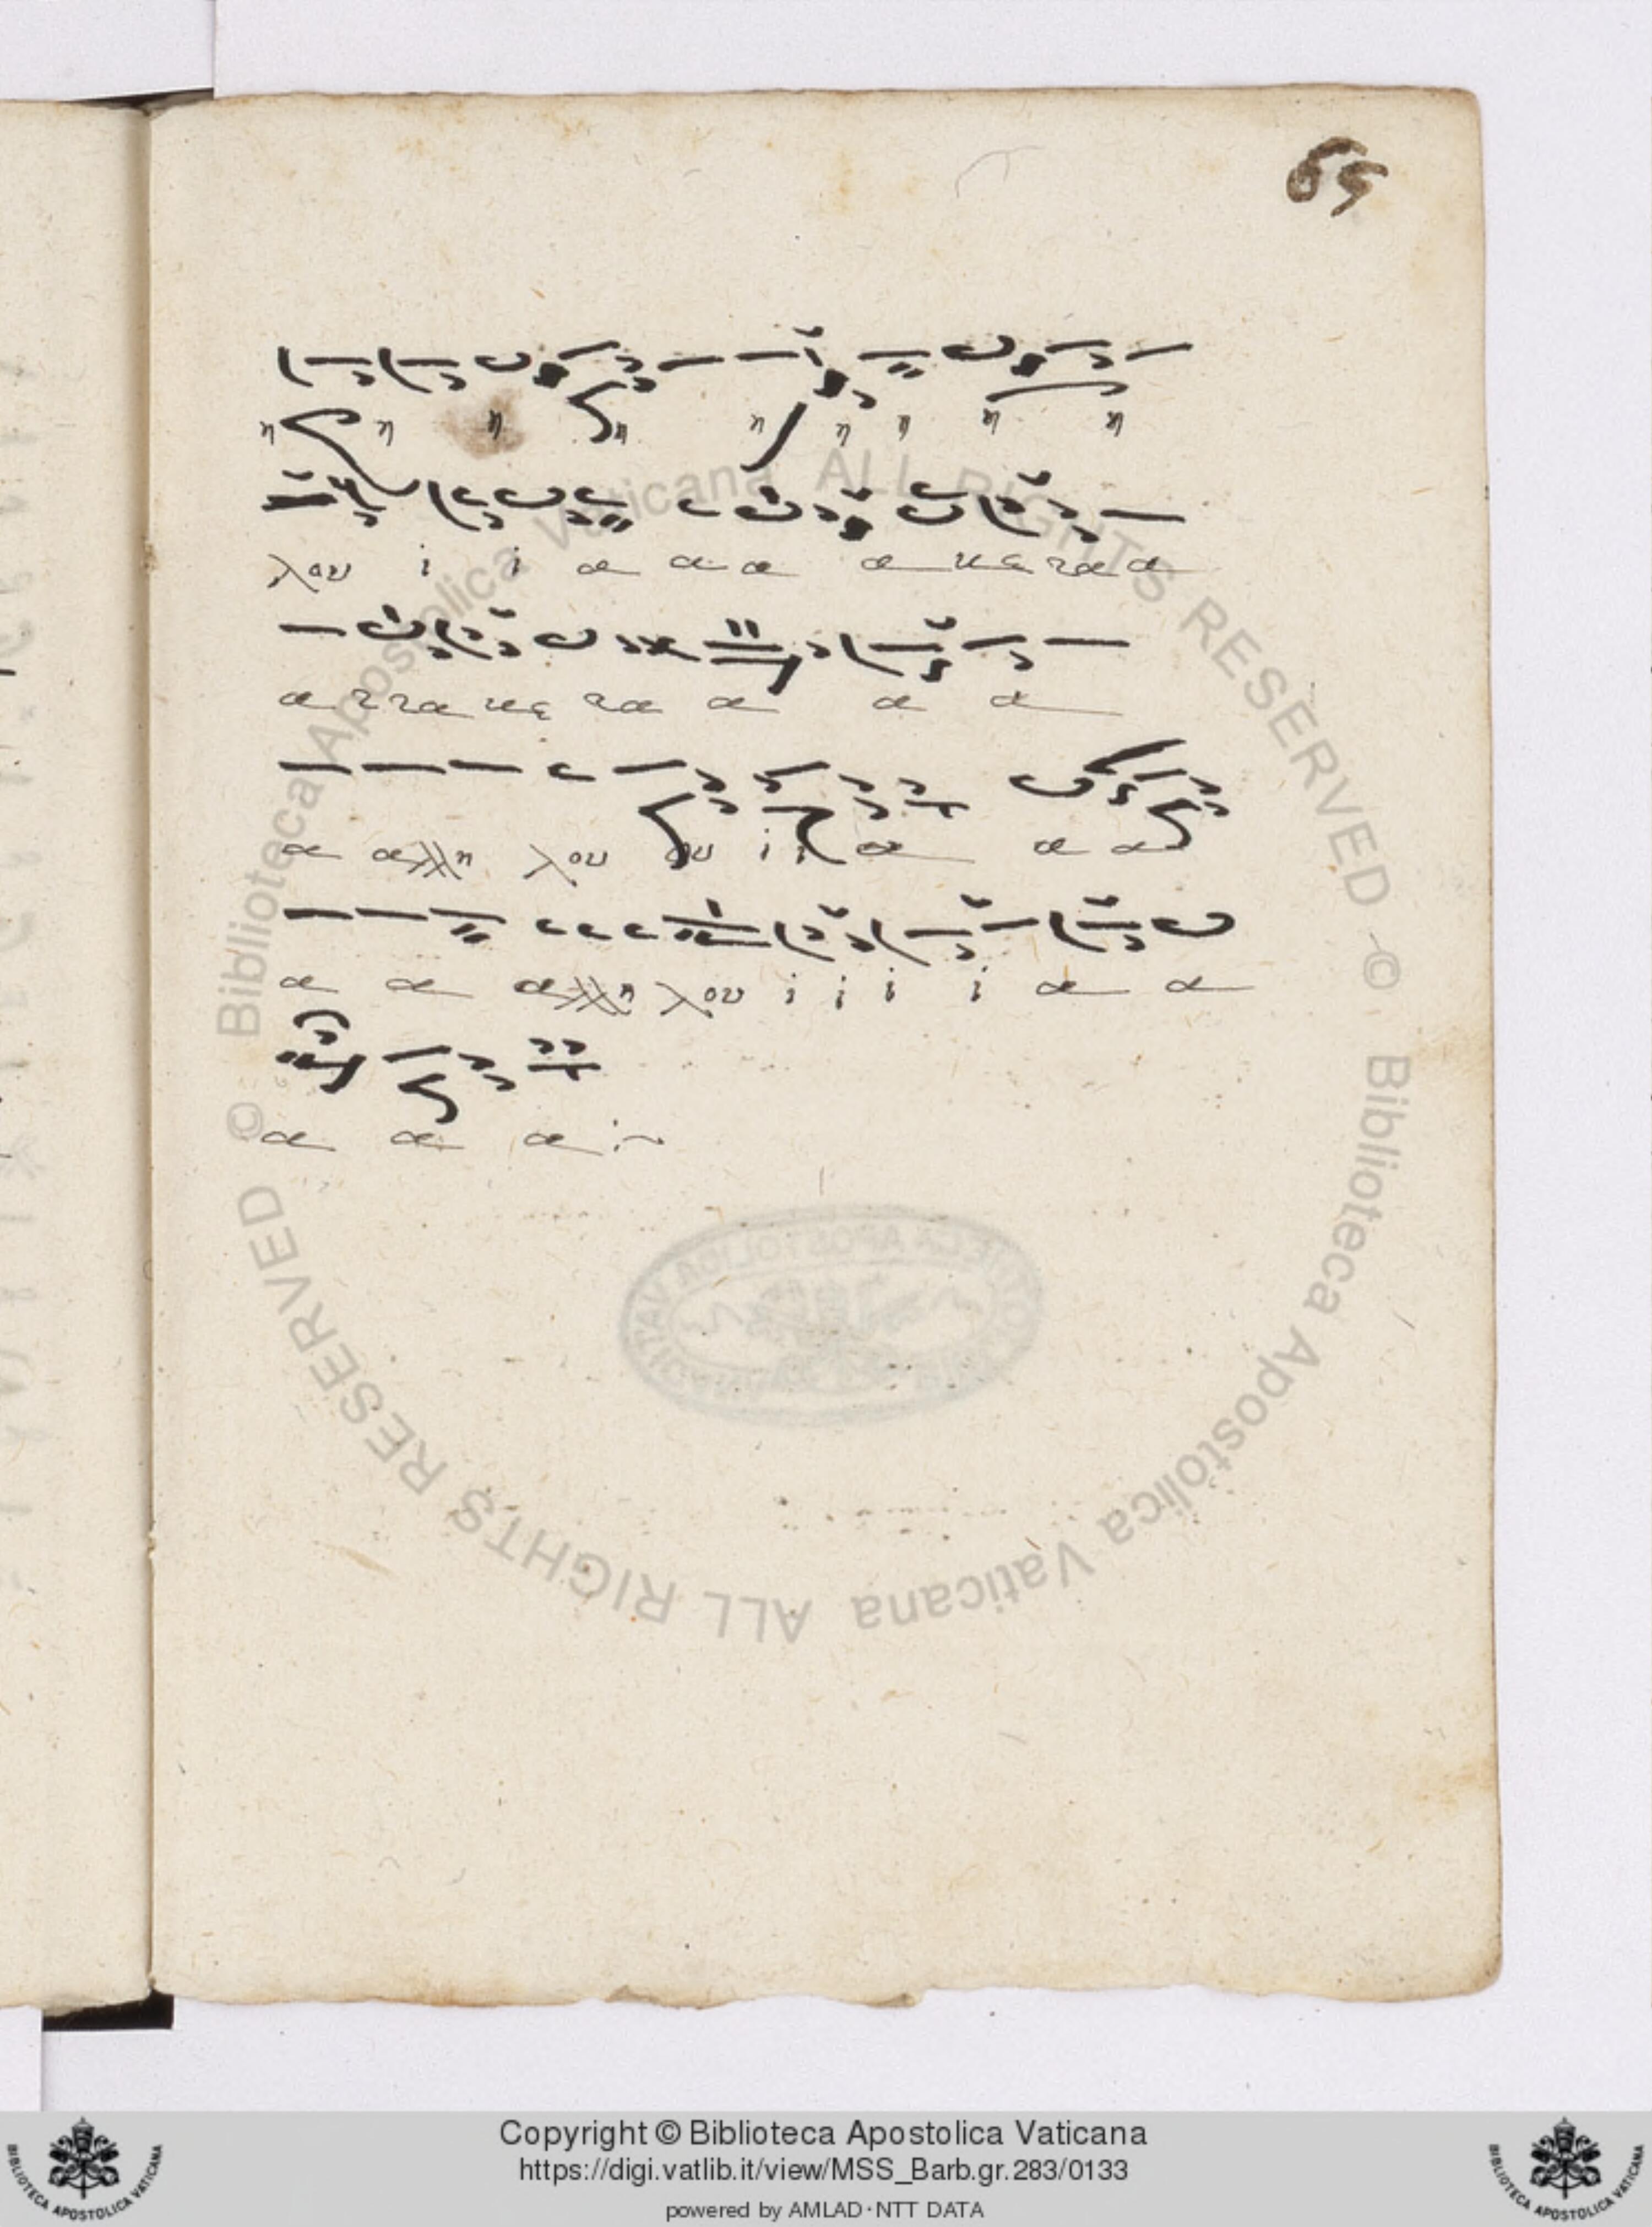 65
η η η η η η η η η
λου ι ι α α α α νε να α
α ν να νε να α α α
α αλλη λου ου ι ι α α α
α α αλλη λου ι ι ι ι α α
α α α :~
Biblioteca Apostolica Vaticana ALL RIGHTS RESERVED ©
Biblioteca Apostolica Vaticana ALL RIGHTS RESERVED ©
Copyright © Biblioteca Apostolica Vaticana
https://digi.vatlib.it/view/MSS_Barb.gr.283/0133
powered by AMLAD·NTT DATA
BIBLIOTECA APOSTOLICA VATICANA
BIBLIOTECA APOSTOLICA VATICANA